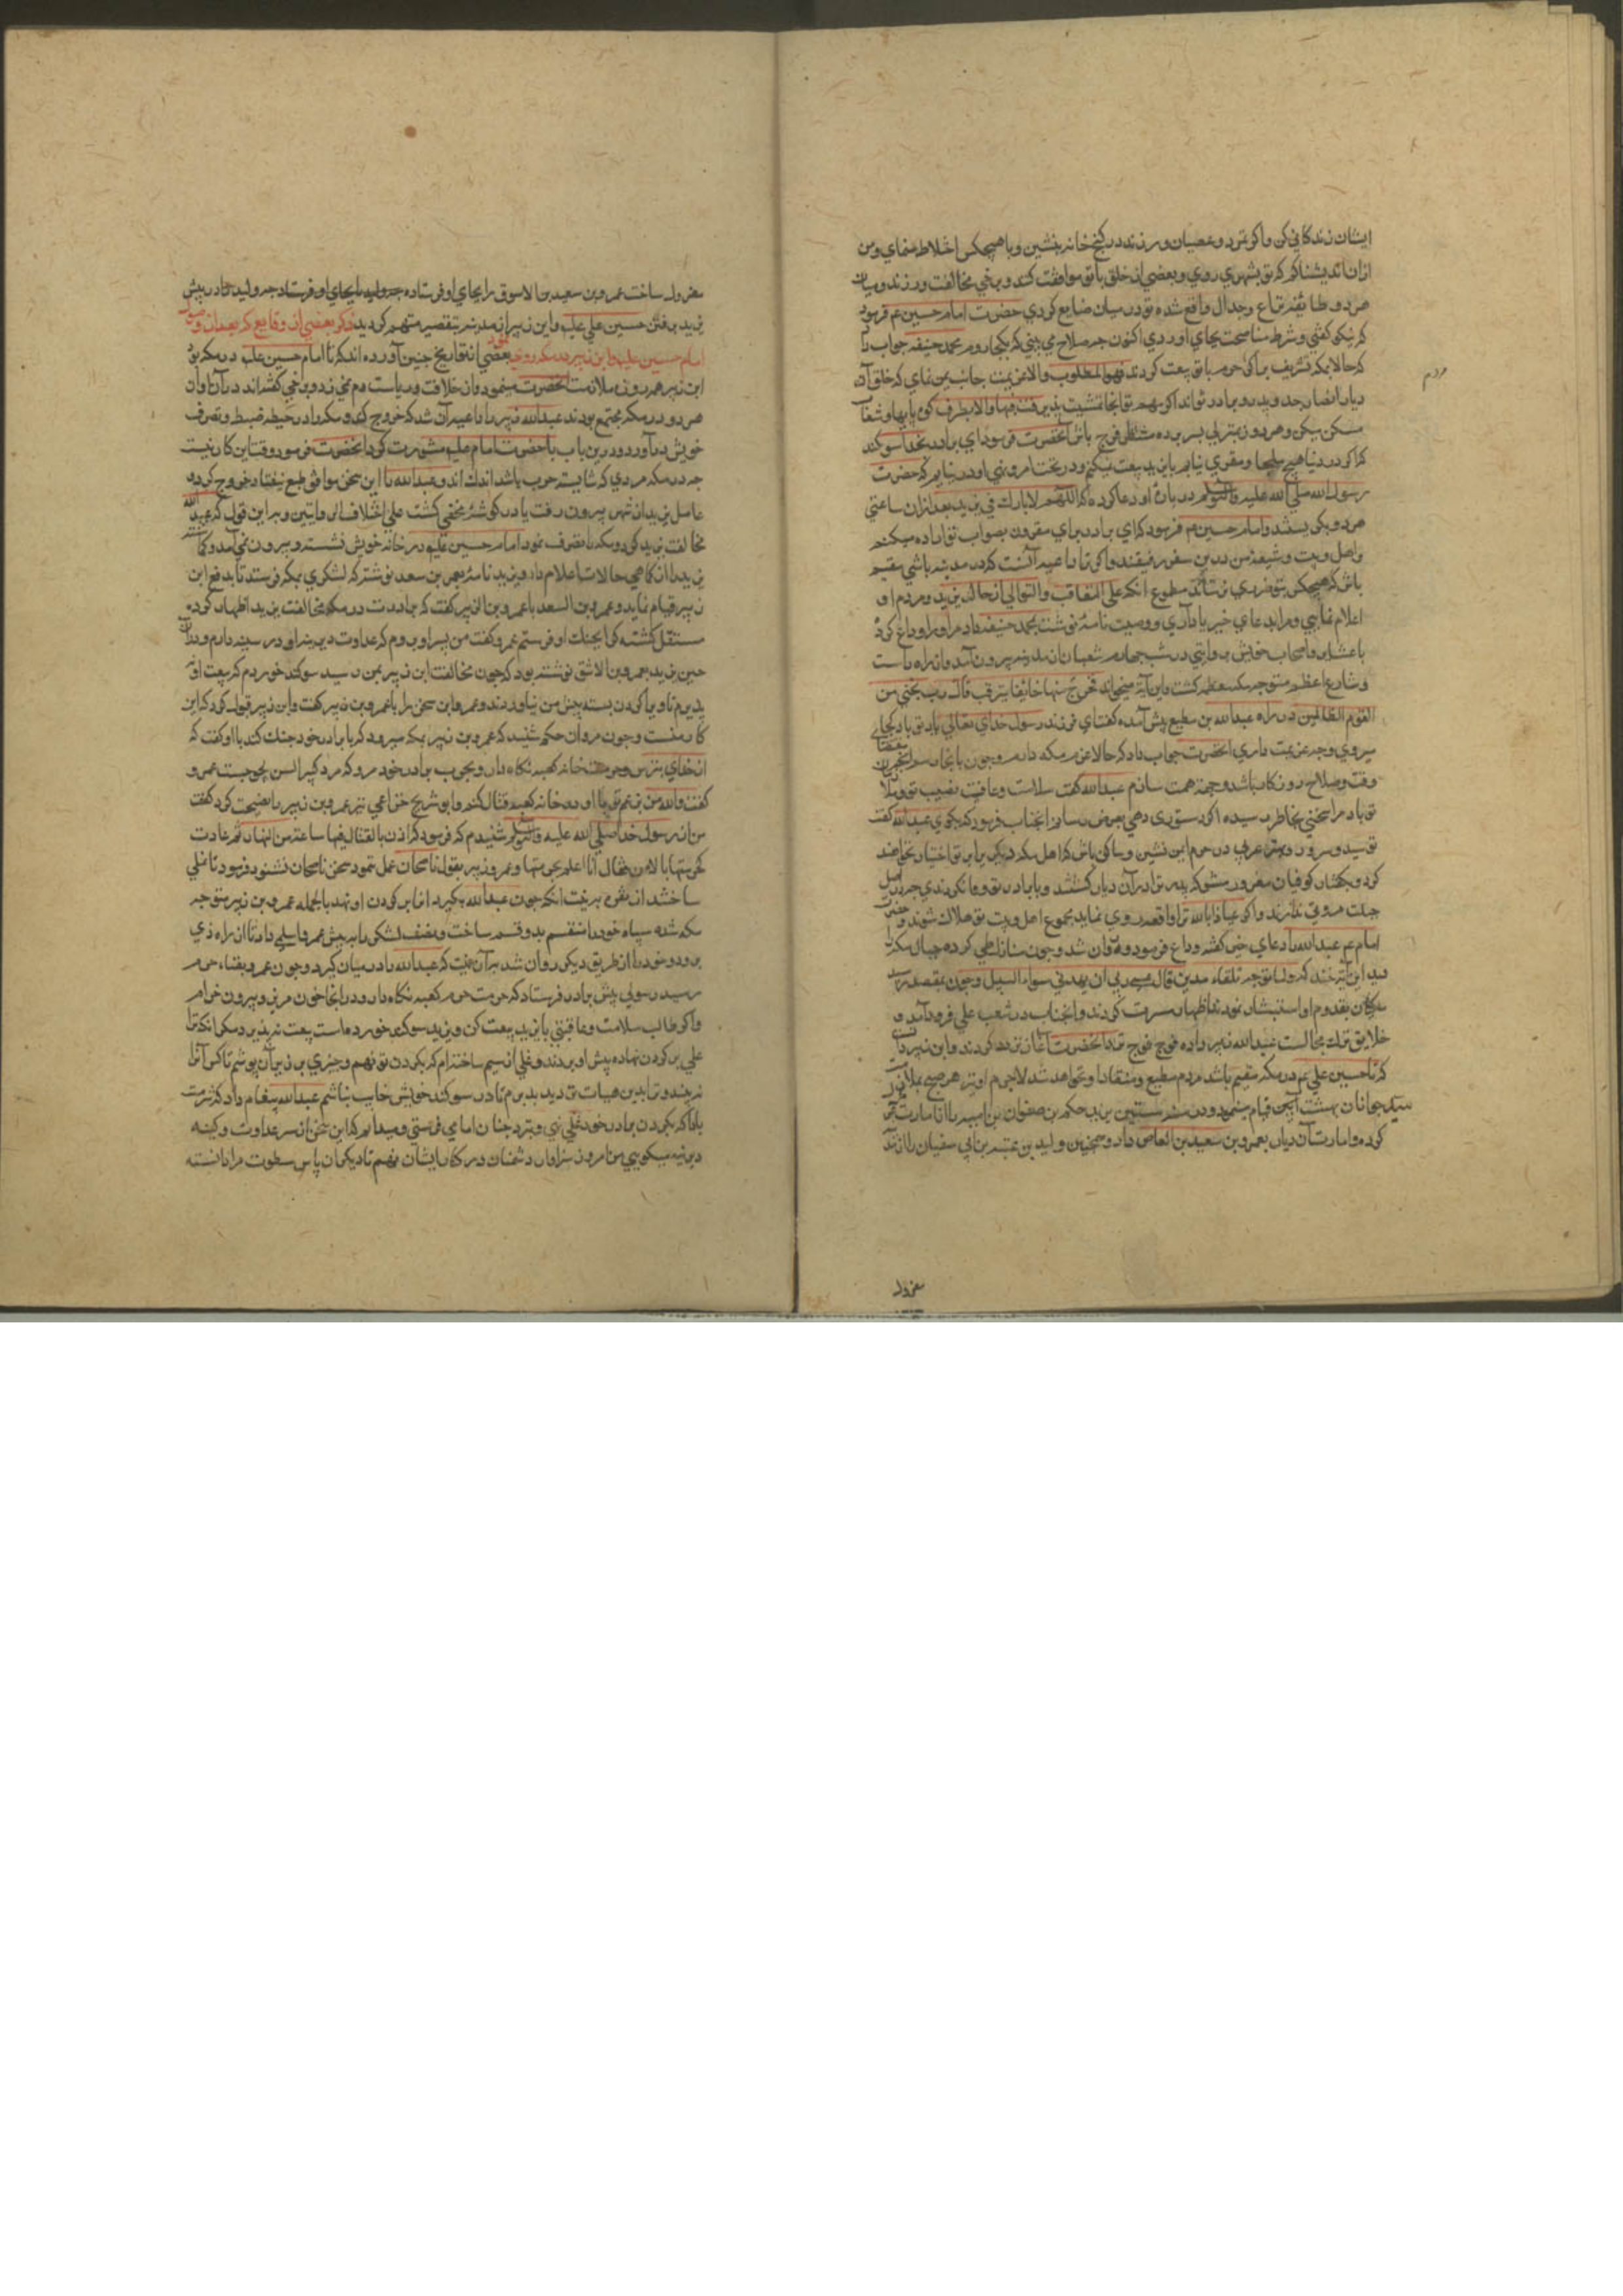 ایشان زندکانی کن واکر تمرد وعصیان ورزند در کنج خانه بنشین وبا هیچکس اختلاط منمای ومن
ازان اندیشناکم که تو بشهری روی وبعضی از خلق با تو موافقت کنند وبرخی مخالفت ورزند ومیان
هر دو طائفه نزاع وجدال واقع شده تو در میان ضایع کردی حضرت امام حسین عم فرمود
که نیکو کفتی وشرط مناصحت بجای اوردی اکنون چه صلاح می بینی که بکجا روم محمد حنیفه جواب داد
که حالا بمکه تشریف بر اکر حرم با تو بیعت کردند فهو المطلوب والا عزیمت جانب یمن نمای که خلق آن
دیار انصار جد وپدر وبرادر تواند اکر مهم تو انجا تمشیت پذیرفت فبها والا بطرف کوه پایها وشعاب
مسکن بکن وهر روز بمنزلی بسر برده منتظر فرج باش آنحضرت فرمود ای برادر بخدا سوکند
که اکر در دنیا هیچ ملجا ومقری نیابم با یزید بیعت نمیکنم ودر تحت امر ونهی او در نیایم که حضرت
رسول الله صلی الله علیه وآله وسلم در باره او دعا کرده که اللهم لا بارک فی یزید بعد ازان ساعتی
هر دو بکریستند وامام حسین عم فرمود که ای برادر برای مقرون بصواب تو اراده میکنم
واهل وبیت وشیعه من درین سفر رفیقند واکر ترا داعیه آنست که در مدینه باشی مقیم
باش که هیچکس بتو ضرری نرساند مطموع انکه علی التعاقب والتوالی از حال یزید ومردم او
اعلام نمایی ومرا بدعای خیر یاد آری ووصیت نامه نوشت بمحمد حنیفه داد واو را وداع کرد
با عشایر واصحاب خویش بروایتی در شب چهارم شعبان از مدینه بیرون آمد واز راه راست
وشارع اعظم متوجه مکه معظمه کشت واین آیة میخواند فخرج منها خائفا یترقب قال رب نجنی من
القوم الظالمین در راه عبدالله بن مطیع پیش آمده کفت ای فرزند رسول خدای تعالی بارید تو باد بکجا
میروی وچه عزیمت داری آنحضرت جواب داد که حالا عزم مکه دارم وچون بانجا رسم
وقت وصلاح روزکار باشد وجهة همت سازم عبدالله کفت سلامت وعافیت نصیب تو وبلا
تو باد مرا سخنی بخاطر رسیده اکر دستوری دهی بعرض رسانم انجناب فرمود که بکوی عبدالله کفت
تو سید وسرور وبهتر عربی در حرم امن نشین وساکن باش که اهل مکه دیکری را بر تو اختیار نخواهند
کرد وبکفتار کوفیان مغرور مشو که پدر ترا در آن دیار کشتند وبا برادر تو وفا نکردندی چه در اهل
جبلت مروتی ندارند واکر عیاذا بالله ترا واقعه روی نماید مجموع اهل وبیت تو هلاک شوند وحضرت
امام عم عبدالله را دعای خیر کفته وداع فرمود وروان شد وچون منازل طی کرده جبال مکه را
دید این آیة خواند که ولما توجه تلقاء مدین قال عسی ربی ان یهدینی سواء السبیل وچون بمقصد رسید
مکیان بقدوم او استبشار نمودند اظهار مسرت کردند وانجناب در شعب علی فرود آمد و
خلایق ترک مجالست عبدالله زبیر داده فوج فوج نزد آنحضرت آغاز تردد کردند وابن زبیر دانست
که تا حسین علی عم در مکه مقیم باشد مردم مطیع ومنقاد او نخواهد شد لاجرم او نیز هر صبح بملازمت
سید جوانان بهشت آیین قیام مینمود ودر سنه ستین یزید حکم بن صفوان بن امیه را از امارت مکه
کرده وامارت آن دیار بعمرو بن سعید بن العاص داد وهمچنین ولید بن عتبه بن ابی سفیان را از مدینه
مردم
معزول
معزول ساخت عمرو بن سعید بن الاسوق را بجای او فرستاده چه ولید را بجای او فرستاد چه ولید در پیش
یزید برفتن حسین علی علیه وابن زبیر از مدینه بتقصیر متهم کردید ذکر بعضی از وقایع که بعد از وصول
امام حسین علیه وابن زبیر در مکه روی نمود بعضی از تواریخ چنین آورده اند که تا امام حسین علیه در مکه بود
ابن زبیر هر روزه ملازمت آنحضرت مینمود واز خلافت وریاست دم نمی زد وبرخی کفته اند در آن اوان
هر دو در مکه مجتمع بودند عبدالله زبیر را داعیه آن شد که خروج کند ومکه را در حیطه ضبط وتصرف
خویش در آورد ودرین باب با حضرت امام علیه مشورت کرد آنحضرت فرمود وقت این کار نیست
چه در مکه مردی که شایسته حرب باشد اندک اند وعبدالله را این سخن موافق طبع نیفتاد خروج کرده
عامل یزید از شهر بیرون رفت یا در کوشه مخفی کشت علی اختلاف الروایتین وبر این قول که عبدالله
مخالفت یزید کرد ومکه را متصرف نمود امام حسین علیه در خانه خویش نشسته وبیرون نمی آمد
یزید را از کماهی حالات اعلام داد ویزید نامه بعمر بن سعد نوشته که لشکری بمکه فرستد تا بدفع ابن
زبیر قیام نماید وعمرو بن السعد با عمرو بن الزبیر کفت که برادرت در مکه مخالفت یزید اظهار کرده
مستقل کشته کرا بجنک او فرستم عمرو کفت من بسر او بروم که عداوت دیرینه او در سینه دارم ودر آن
حین یزید بعمرو بن الاشق نوشته بود که چون مخالفت ابن زبیر بمن رسید سوکند خوردم که بیعت او
پذیرم تا ویرا کردن بسته پیش من نیاورند وعمرو این سخن را با عمرو بن زبیر کفت وابن زبیر قبول کرد که این
کار منست وچون مروان حکم شنید که عمرو بن زبیر بمکه میرود که با برادر خود جنک کند با او کفت که
از خدای بترس وحرمت خانه کعبه نکاه دار وبحرب برادر خود مرو که مرد کبیر السن عمرو
کفت والله من برغم تو با او در خانه کعبه قتال کنم وابو شریح خزاعی نیز عمرو بن زبیر را نصیحت کرد کفت
من از رسول خدا صلی الله علیه وآله وسلم شنیدم که فرمود که اذن بالقتال فیها ساعة من النهار ثم عادت
کحرمتها بالامس فقال انا اعلم بحرمتها وعمرو زبیر بقول ناصحان عمل ننمود سخن ناصحان نشنود وفرمود تا غلی
ساختند از نقره بنیت انکه چون عبدالله بکیرد انرا بر کردن او نهد بالجمله عمرو بن زبیر متوجه
مکه شده سپاه خود را منقسم بدو قسم ساخت ونصف لشکر را به پیش عمرو اسلمی داد تا از راه ذی
برود وخود را از طریق دیکر روان شد بر آن نیت که عبدالله را در میان کیرد وچون عمرو بفناء حرم
رسید رسولی پیش برادر فرستاد که حرمت حرم کعبه نکاه دار ودر انجا خون مریز وبیرون خرام
واکر طالب سلامت وعاقبتی با یزید بیعت کن ویزید سوکند خورده است بیعت نپذیرد مکر انکه ترا
غلی بر کردن نهاده پیش او برند وغلی از سیم ساخته ام که بکردن تو نهم وچیزی بر زیر آن پوشم تا کس آنرا
نبیند وترا بدین هیات نزد یزید برم تا در سوکند خویش خایب نباشم عبدالله پیغام داد که شرمت
باد که بکردن برادر خود غلی نهی ونزد چنان امامی فرستی ومیدانم که این سخن از سر عداوت وکینه
دیرینه میکویی من امروز سزاوار دشمنان در کنار ایشان نهم تا دیکران پاس سطوت مرا دانسته